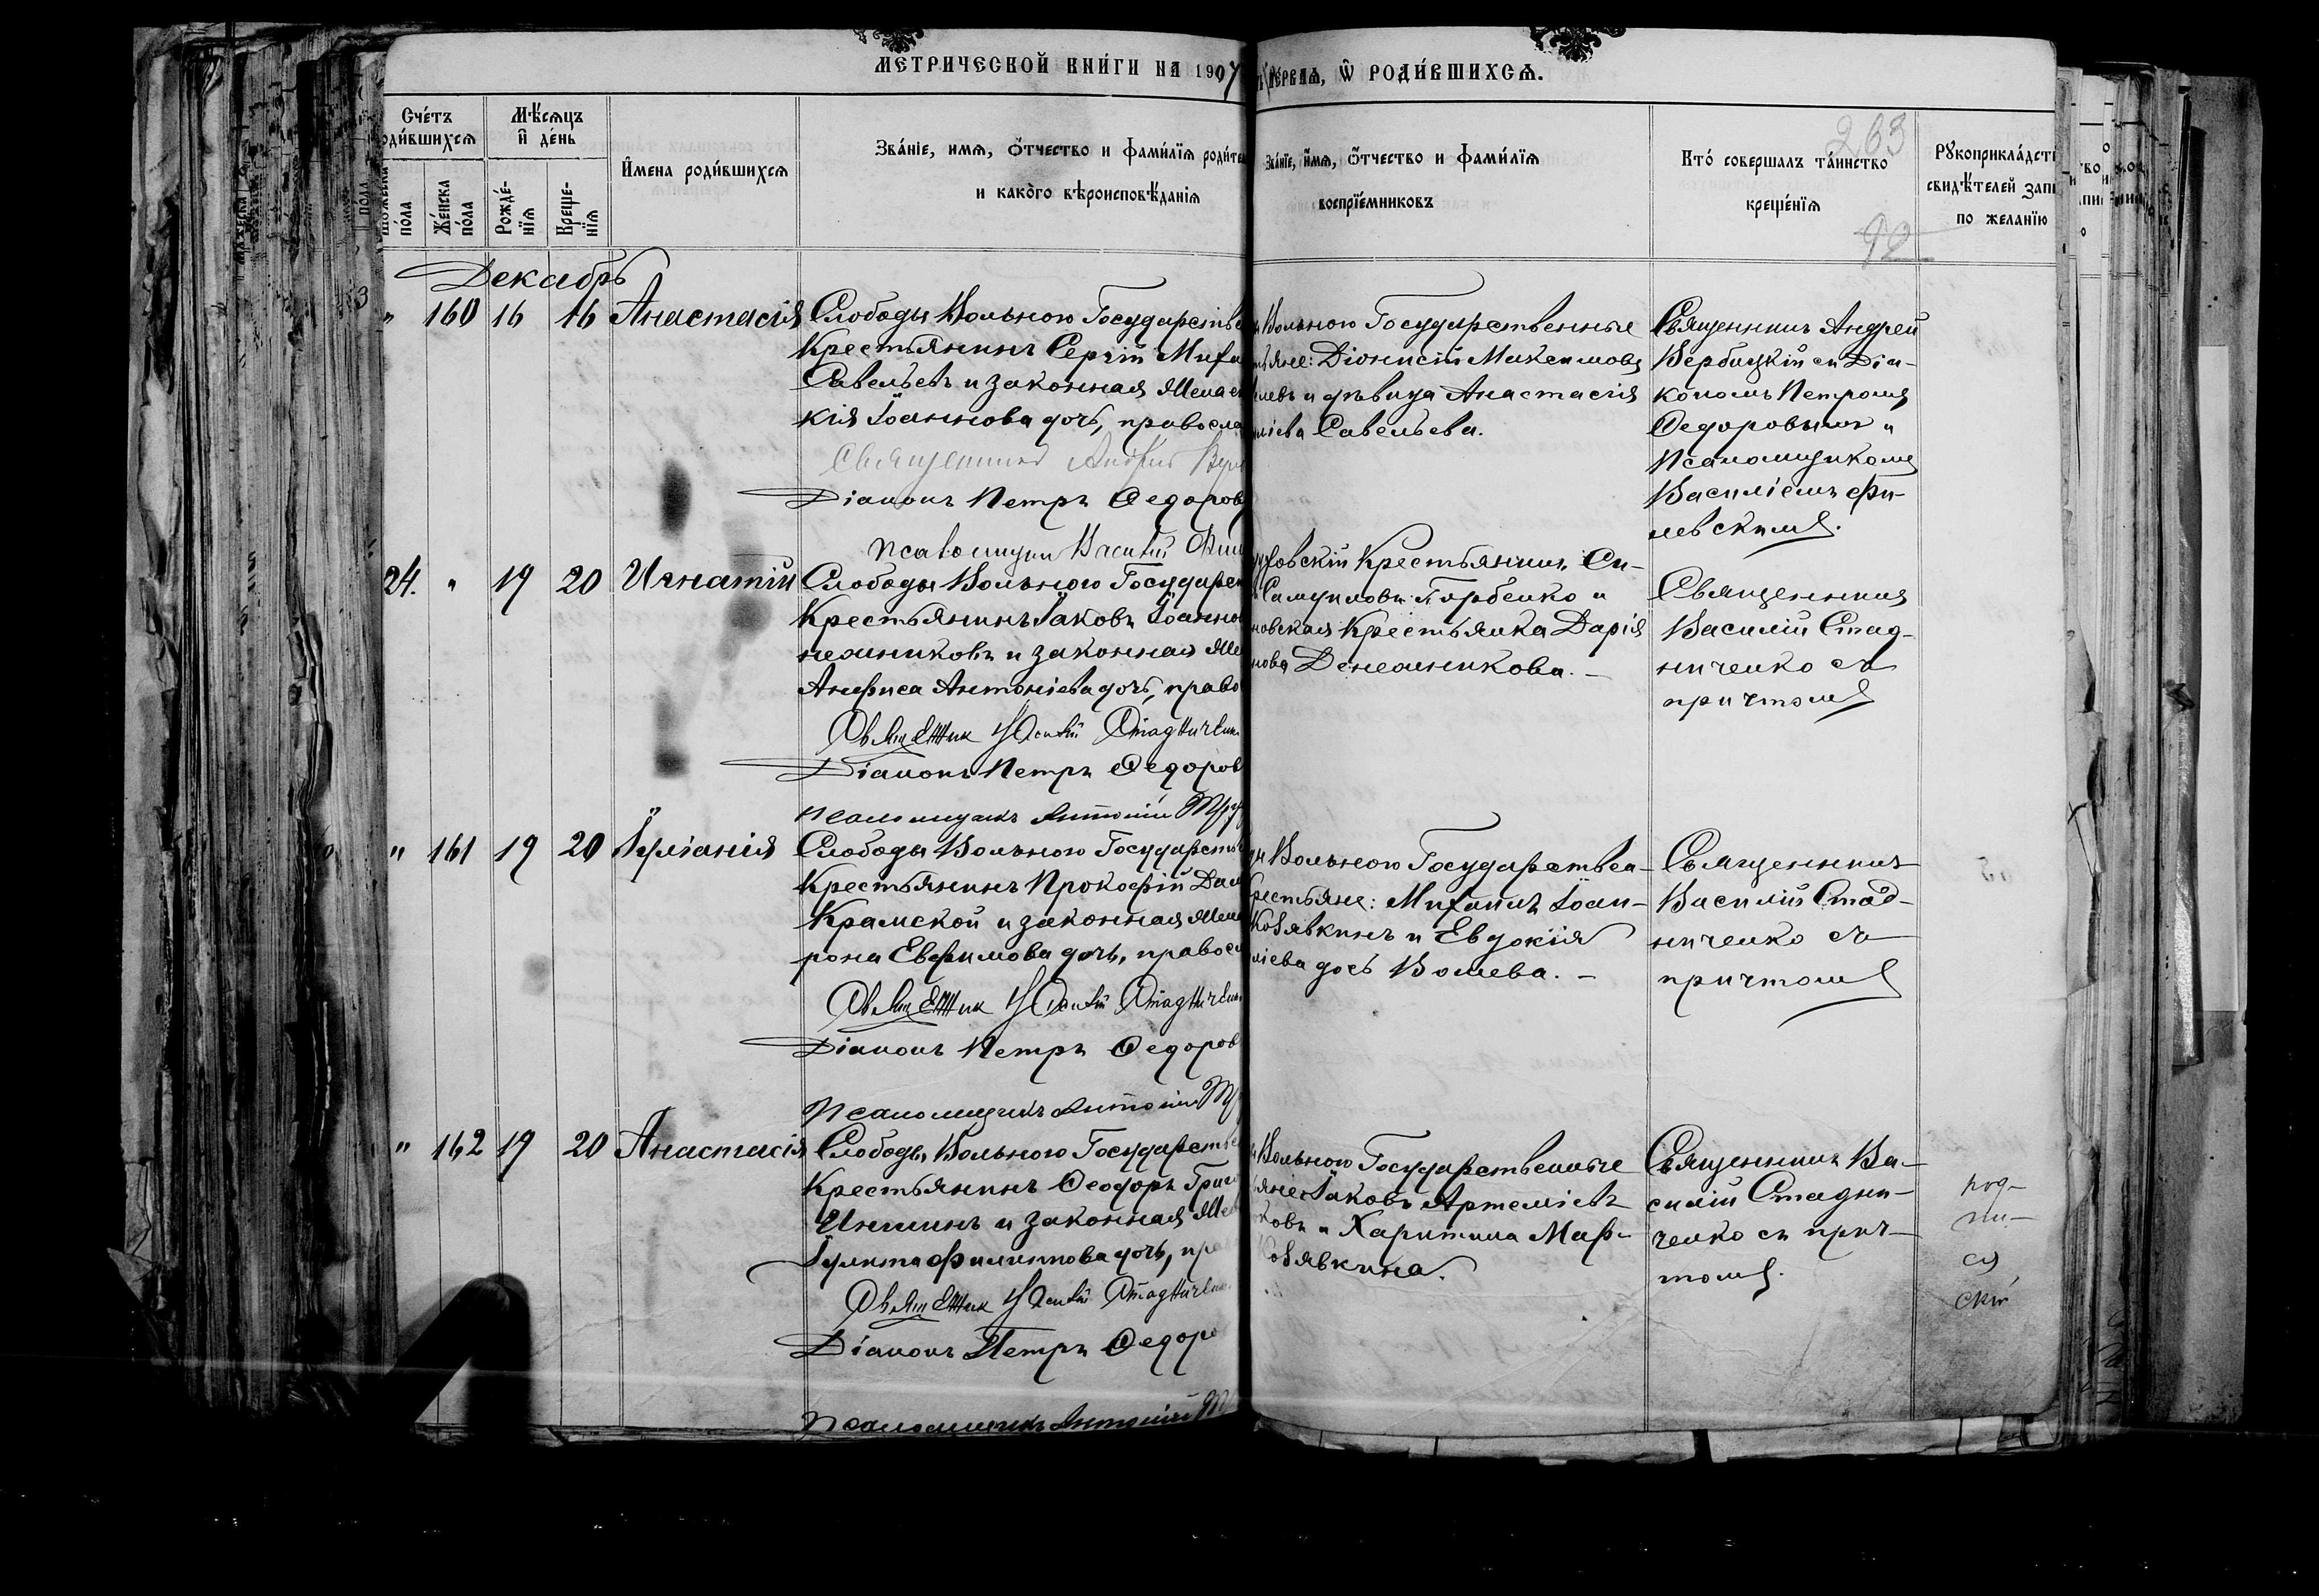 МЕТРИЧЕСКОЙ КНИ́ГИ НА 1907
ПЕ́РВАЯ, Ѿ РОДИ́ВШИХСѦ.
263
92
Сче́тъ
роди́вшихсѧ
Мѣ́сѧцъ
и҆ де́нь
Же́нска
по́ла
Рожде́-
нїѧ
Креще-
нїѧ
И҆мена роди́вшихсѧ
Зва́нїе, имѧ, о́тчество и фами́лїѧ
и како́го вѣроисповѣ́данїѧ
Зва́нїе, и҆́мѧ, о́тчество и фами́лїѧ
воспрїе́мниковъ
Кто́ соверша́лъ та́инство
креще́нїѧ
свидѣ́телей
по жела́нїю
Декабрь
" 160 16 16 Анастасія
Слободы Вольного Государстве
Крестьянинъ Сергій Миха
Савельевъ и законная жена
кія Іоаннова дочь, правосла
Священникъ Андрей
Діаконъ Петръ Ѳедоров
Псаломщик Василій
Вольного Государственные
Діонисій Максимовъ
и дѣвица Анастасія
Савельева.
Священникъ Андрей
Вербицкій съ Діа-
кономъ Петромъ
Ѳедоровымъ и
Псаломщикомъ
Василіемъ Фи-
левскимъ.
24. " 19 20 Игнатій
Слободы Вольного Государст
Крестьянинъ Іаковъ Іоанно
нежниковъ и законная же
Анфиса Антоніева дочь, право
Священник Василій Стадниченк
Діаконъ Петръ Ѳедоров
Псаломщикъ Антоній
Крестьянинъ Си-
Самуиловъ Горбенко и
Крестьянка Дарія
Денежникова. –
Священникъ
Василій Стад-
ниченко съ
причтомъ
" 161 19 20 Іуліанія
Слободы Вольного Государств
Крестьянинъ Прокофій Дам
Крамской и законная жен
рона Евфимова дочь, правосл
Священник Василій Стадниченк
Діаконъ Петръ Ѳедоров
Псаломщикъ Антоній
Вольного Государствен-
рестьяне: Михаилъ Іоан-
Козявкинъ и Евдокія
дочь Волева. –
Священникъ
Василій Стад-
ниченко съ
причтомъ
" 162 19 20 Анастасія
Слободы Вольного Государстве
Крестьянинъ Ѳеодоръ Григ
Иншинъ и законная же
Іулита Филиппова дочь, пра
Священник Василій Стадниченк
Діаконъ Петръ Ѳедоро
Псаломщикъ Антоній
Вольного Государственные
Іаковъ Артеміевъ
и Харитина Мар-
Козявкина.
Священникъ Ва-
силій Стадни-
ченко съ прич-
томъ.